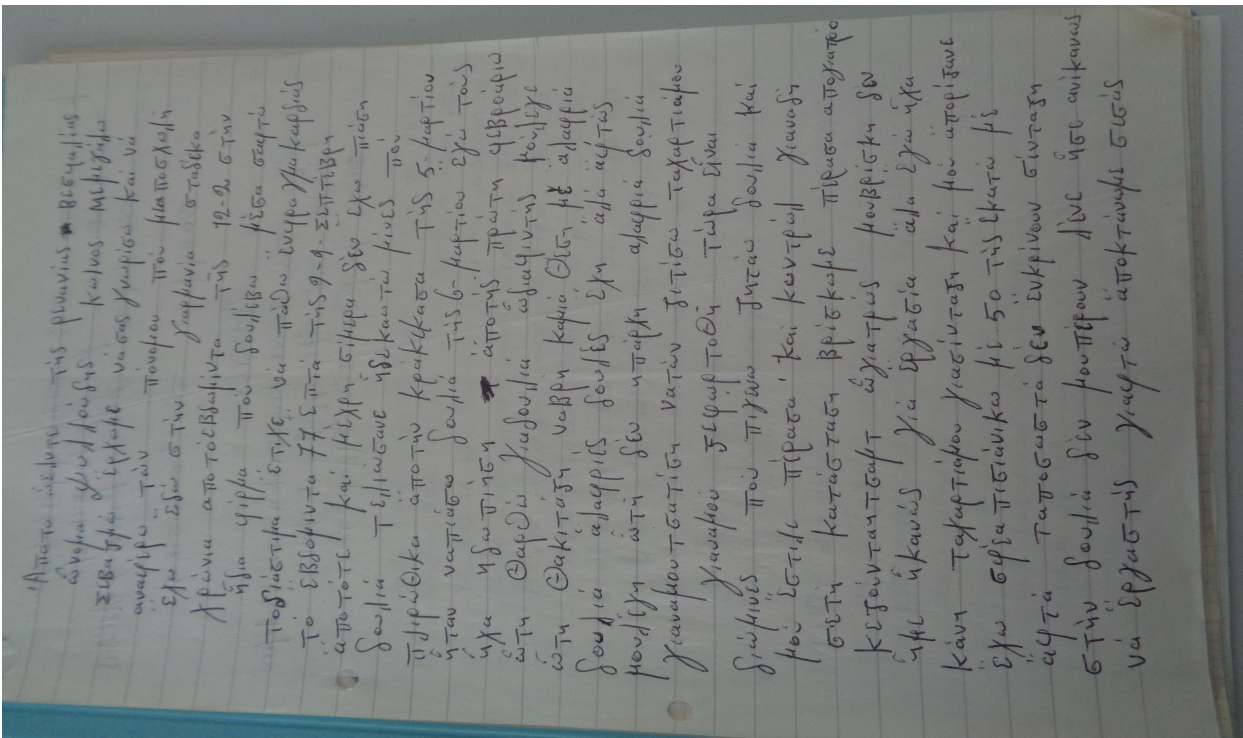 Ἀπατὼ ἤελντε τῆς ρινανίας Βεσφαλίας
ὤνομα Ψυλλούδης κωνος μεμεγάλω
σεβασμω ἔρχωμε νάσας γνωρισω καὶ νὰ
ἀναφέρω τὰν πόνομου ποὺ μεαπασχολῆ
ἔχω ἐδω στὴν γιαρμανια σταδεκα
χρώνια αποτοέβδωμιντα τῆς 12-2 στὴν
ἤδια φιρμα ποὺ δουλέβω μέσα σαφτω
τοδιάστιμα ἔτιχε νὰ πάθω ἐνφραγμακαρδιάς
τὸ ἑβδομιντα 77 ἑπτὰ τῆς 9-9 Σεπτεβρη
ἀποτότε καὶ μέχρη σίμερα δεν ἔχω πιάση
δουλια τελιώσανε ἡδεκαωτώ μίνες ποὺ
πλιρώθικα ἀποτὴν κρακεκασα τῆς 5 μαρτίου
ἤταν ναπιάσω δουλιὰ τῆς 6 μαρτίου ἐγω τοὺς
ἤχα ηδωπιηση ἀποτῆς πρωτη φεβρουαριω
ὤτη θαρθῶ γιαδουλιὰ ὠδιαφιντὴς μουλεγε
ὤτη θακιτάξη ναβρῆ καμιὰ θεση μὲ ἀλαφριὰ
δουλιὰ ἀλαφριὲς δουλὲς ἔχη αλα ἀφτὼς
μουλέγη ὠτη δεν ηπάρχη αλαφριὰ δουλιὰ
γιαναμουτσατίση νατὰν ζιτισω ταχαρτιάμου
γιαναμου ξεφωρτοθῆ τώρα εἶναι
διώμινες ποὺ πιγένω ζητάω δουλια καὶ
μου ἔστιλε πέρασα καὶ κωντρὼλ γιαναδῆ
σετη κατάσταση βρίσκωμε πέρασα απογιατρὸ
κεζαναητσαμτ ὠγιατρὼς μουβρίσκη δὲν
ἤμε ἠκανὼς γιὰ ἐργασία ἀλα ἐγὼ ἤχα
κάνη ταχαρτιάμου γιασίνταξη καὶ μου απορίψανε
ἔχω σφεραπισιάνικω μὲ 50 τῆς ἑκατω μὲ
ἀφτὰ ταποσωστὰ δὲν ἐνκρίνουν σίνταξη
στὴν δουλιὰ δὲν μουπέρουν λένε ἤσε ανίκανως
νὰ ἐργαστῆς γιαφτὼ ἀποκτάνωμε σεσᾶς